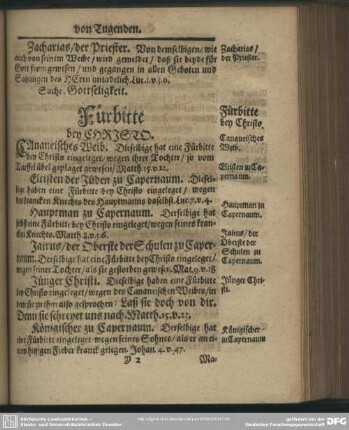 von Tugenden.
Zacharias/ der Priester. Von demselbigen/ wie
auch von seinem Weibe/ wird gemeldet/ daß sie beyde für
Gott from gewesen/ und gegangen in allen Geboten und
Satzungen des HErrn untadelich. Luc. 1. v. 5. 6.
Suche. Gottseligkeit.
Zacharias/
der Priester.
Fürbitte
bey CHRISTO.
Fürbitte
bey Christo.
CAnaneisches Weib. Dieselbige hat eine Fürbitte
bey Christo eingeleget/ wegen ihrer Tochter/ so vom
Teuffel übel geplaget gewesen/ Matth. 15. v. 22.
Cananeisches
Weib.
Eltisten der Jüden zu Capernaum. Diesel-
bige haben eine Fürbitte bey Christo eingeleget/ wegen
des krancken Knechts des Hauptmanns daselbst. Luc. 7. v. 4.
Eltisten zu Ca-
pernaum.
Hauptman zu Capernaum. Derselbige hat
selbst eine Fürbitte bey Christo eingeleget/ wegen seines kran-
cken Knechts. Matth. 8. v. 5. 6.
Hauptman zu
Capernaum.
Jairus/ der Oberste der Schulen zu Caper-
naum. Derselbige hat eine Fürbitte bey Christo eingeleget/
wegen seiner Tochter/ als sie gestorben gewesen. Mat. 9. v. 18
Jairus/ der
Oberste der
Schulen zu
Capernaum.
Jünger Christi. Dieselbige haben eine Fürbitte
bey Christo eingeleget/ wegen des Cananeischen Weibes/ in-
dem sie zu ihm also gesprochen: Laß sie doch von dir.
Denn sie schreyet uns nach. Matth. 15. v. 23.
Jünger Chri-
sti.
Königischer zu Capernaum. Derselbige hat
eine Fürbitte eingeleget wegen seines Sohns/ als er an ei-
nem hitzigen Fieber kranck gelegen. Johan. 4. v. 47.
Königischer
zu Capernaum
Y 2
Ma-
Sächsische Landesbibliothek –
Staats- und Universitätsbibliothek Dresden
gefördert von der
Deutschen Forschungsgemeinschaft
DFG